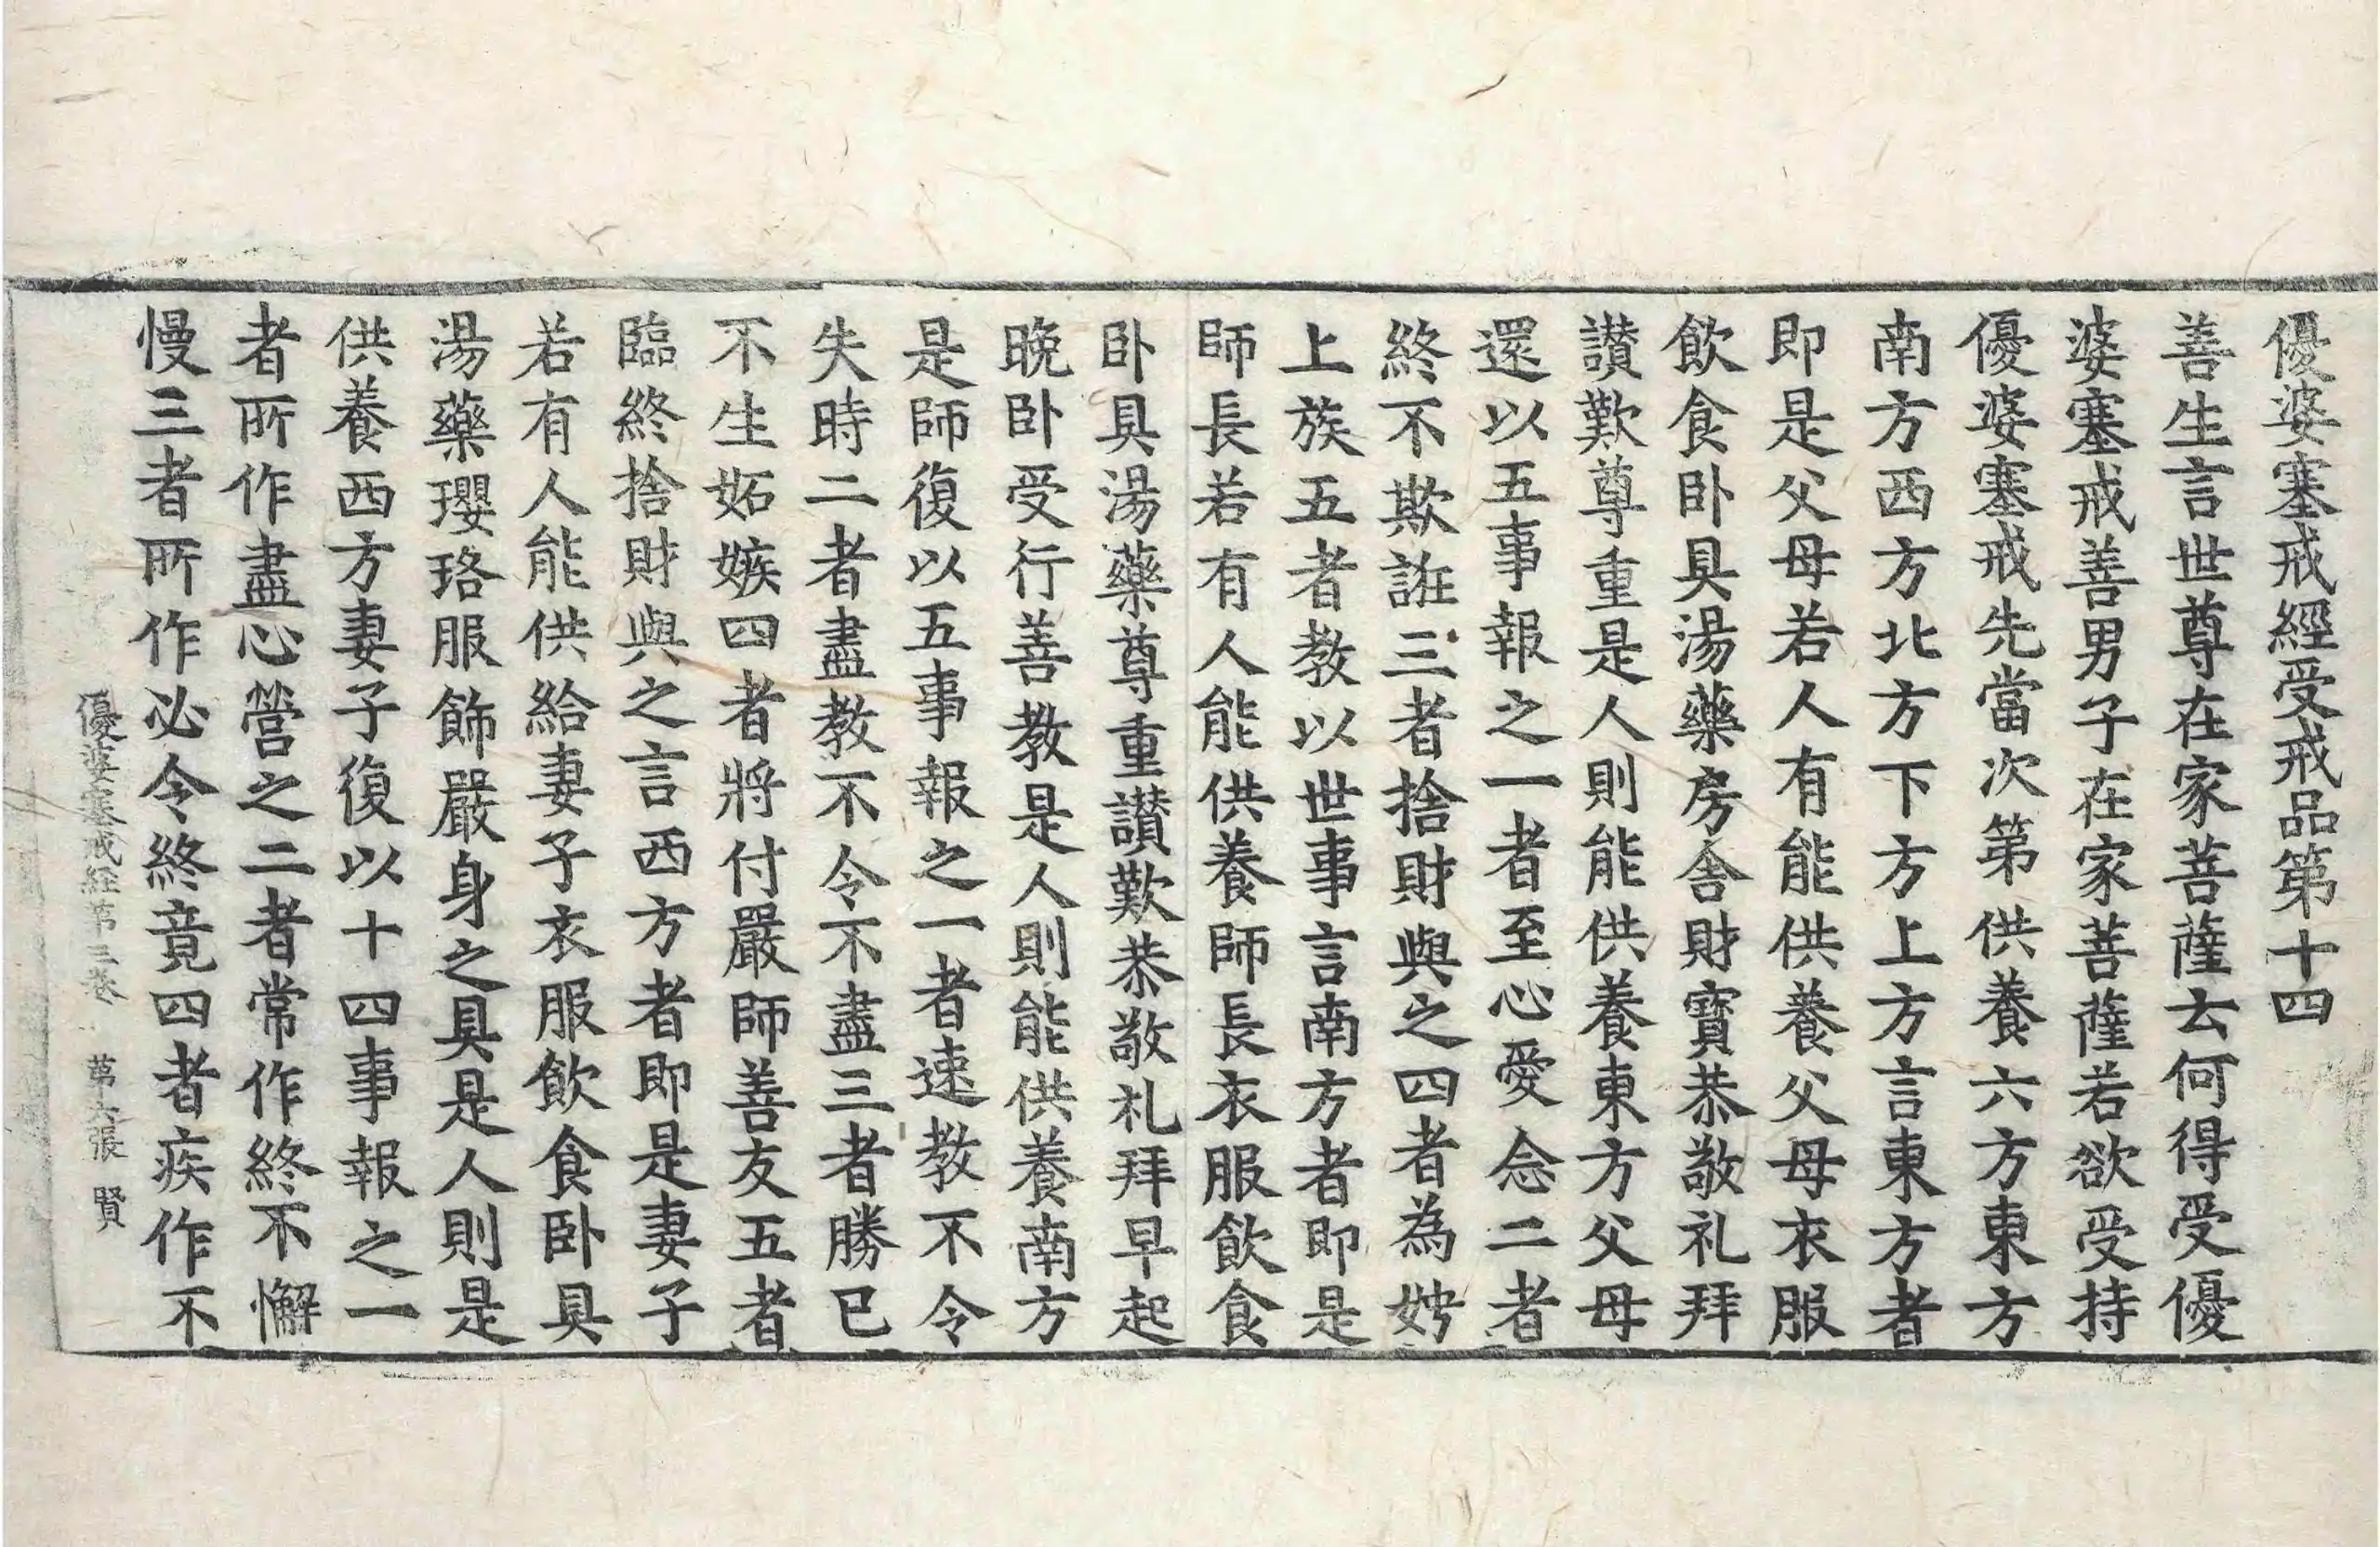 優婆塞戒經受戒品第十四
善生言世尊在家菩薩云何得受優
婆塞戒善男子在家菩薩若欲受持
優婆塞戒先當次第供養六方東方
南方西方北方下方上方言東方者
即是父母若人有能供養父母衣服
飲食卧具湯藥房舍財寶恭敬礼拜
讃歎尊重是人則能供養東方父母
還以五事報之一者至心愛念二者
終不欺誑三者捨財與之四者為娉
上族五者教以世事言南方者即是
師長若有人能供養師長衣服飲食
卧具湯藥尊重讃歎恭敬礼拜早起
晚卧受行善教是人則能供養南方
是師復以五事報之一者速教不令
失時二者盡教不令不盡三者勝已
不生妬嫉四者將付嚴師善友五者
臨終捨財與之言西方者即是妻子
若有人能供給妻子衣服飲食卧具
湯藥瓔珞服飾嚴身之具是人則是
供養西方妻子復以十四事報之一
者所作盡心營之二者常作終不懈
慢三者所作必令終竟四者疾作不
優婆塞戒經第三卷　第十六張　賢